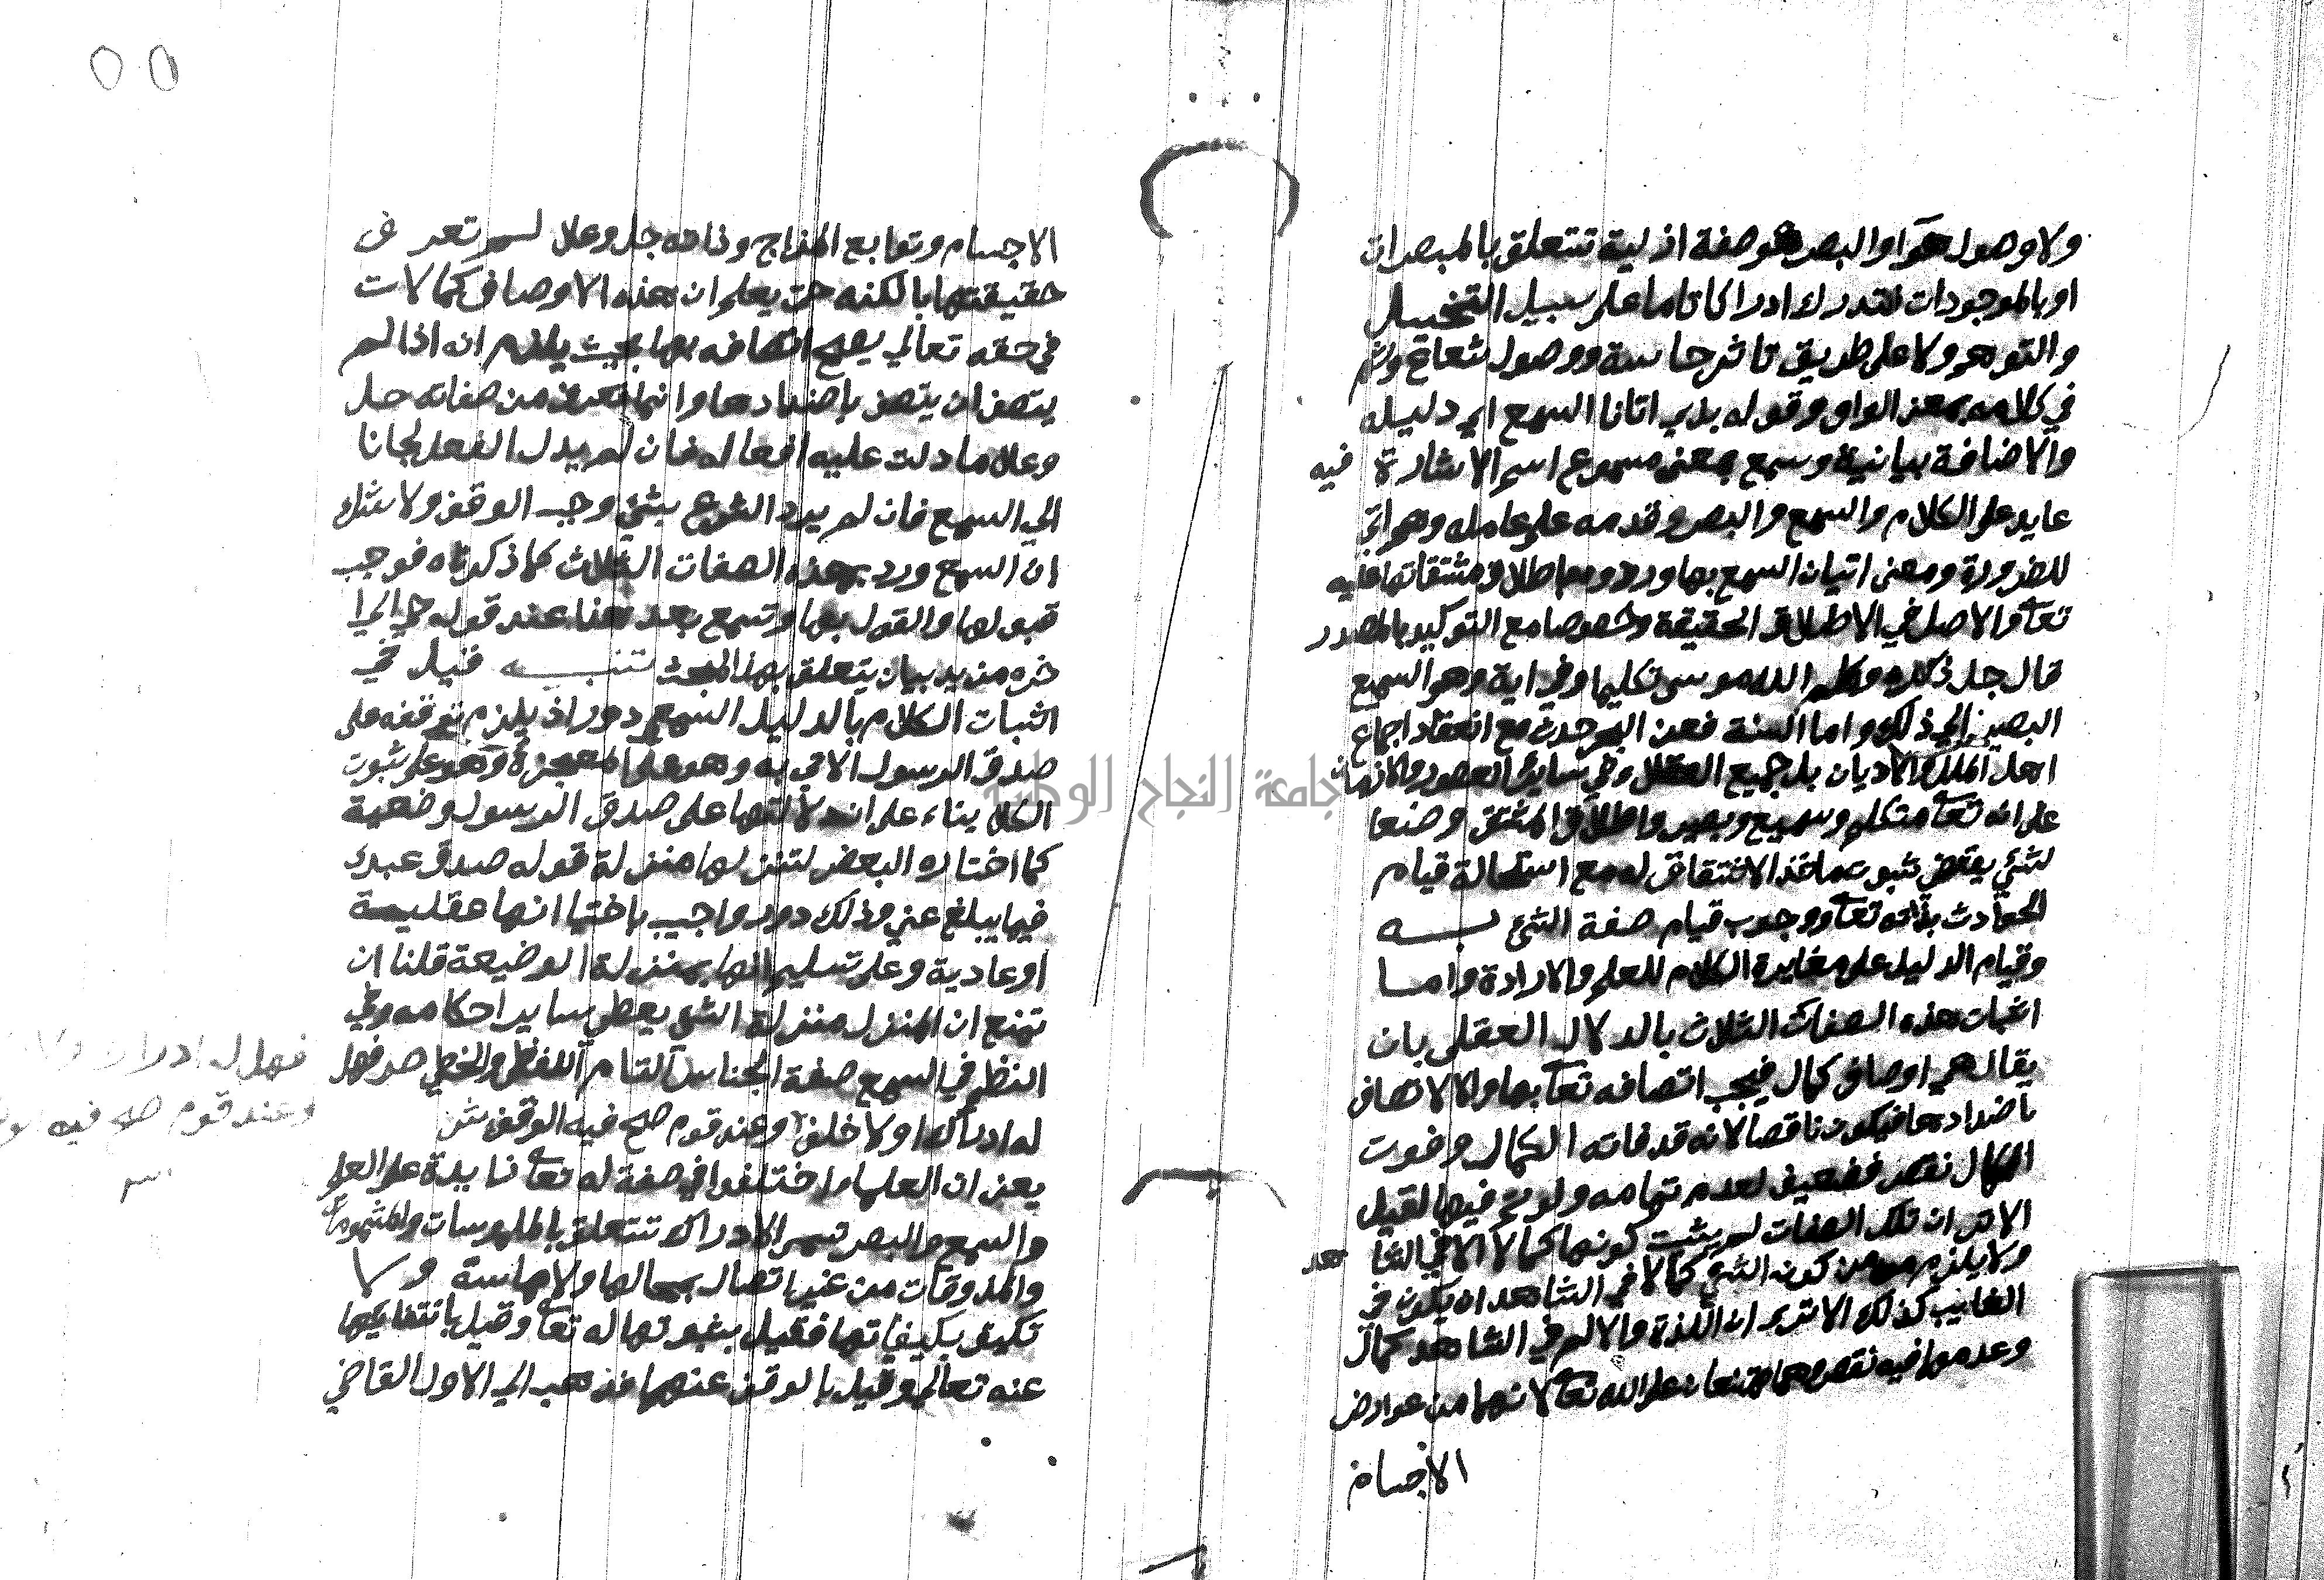 ولا وصول هوا والبصر هو صفة ازلية تتعلق بالمبصرات
او بالموجودات فتدرك ادراكا تاما على سبيل التخييل
والتوهم ولا على طريق تاثر حاسة ووصول شعاع وثم
في كلامه بمعنى الواو وقوله بذي اتانا السمع اي دليله
والاضافة بيانية وسمع بمعنى مسموع اسم الاشارة فيه
عايد على الكلام والسمع والبصر وقدمه على عامله وهو اتى
للضرورة ومعنى اتيان السمع بها وروده باطلاق مشتقاتها عليه
تعا والاصل في الاطلاق الحقيقة وخصوصا مع التوكيد بالمصدر
قال جل ذكره وكلم الله موسى تكليما وفي اية وهو السميع
البصير الى ذلك واما السنة فعن البحر حدث مع انعقاد اجماع
اهل الملل والاديان بل جميع العقلا وفي ساير العصور والازمان
على انه تعا متكلم وسميع وبصير واطلاق المشتق وصفا
لشئ يقتضي ثبوت ماخذ الاشتقاق له مع استحالة قيام
الحوادث بذاته تعا ووجوب قيام صفة الشئ به
وقيام الدليل على مغايرة الكلام للعلم والارادة واما
اثبات هذه الصفات الثلاث بالدلال العقلي بان
يقال هي اوصاف كمال فيجب اتصافه تعا بها والا لاتصاف
باضدادها فيكون ناقصا لانه قد فاته الكمال وفوت
الكمال نقص فضعيف لعدم تمامه ولوضح فيها لقيل
الاتى ان تلك الصفات لم يثبت كونها كمالا الا في الشاهد
ولا يلزم من كون الشئ كمالا في الشاهد ان يكون في
الغايب كذلك الا ترى ان اللذة والالم في الشاهد كمال
وعدمهما فيه نقص وهما ممتنعان على الله تعا لانهما من عوارض
الاجسام
الاجسام وتوابع المزاج وذاته جل وعلا لم تعرف
حقيقتها بالكنه حتى يعلم ان هذه الاوصاف كمالات
في حقه تعالى يصح اتصافه بها بحيث يلزم انه اذا لم
يتصف ان يتصف باضدادها وانما تعرف من صفاته جل
وعلا ما دلت عليه افعاله فان لم يدل الفعل لجانا
الى السمع فان لم يرد الشرع بشئ وجب الوقف ولا شك
ان السمع ورد بهذه الصفات الثلاث كما ذكرناه فوجب
قبولها والقول بها وتسمع بعد هنا عند قوله حي الى ا
خره مزيد بيان يتعلق بهذا المبحث تنبيه قيل في
اثبات الكلام بالدليل السمعي دور اذ يلزم توقفه على
صدق الرسول الاتي به وهو على المعجزة وهو على ثبوت
الكلام بناء على ان دلالتها على صدق الرسول وضعية
كما اختاره البعض لتنزلها منزلة قوله صدق عبدي
فيما يبلغ عني وذلك دور واجيب باختيار انها عقلية
او عادية وعلى تسليم انها بمنزلة الوضيعة قلنا ان
تمنع ان المنزل منزلة الشئ يعطى ساير احكامه وفي
النظم في السمع صفة الجناس التام اللفظي والخطي ص فهل
له ادراك او لا خلف وعند قوم صح فيه الوقف ش
يعني ان العلما اختلفوا في صفة له تعا زايدة على العلم
والسمع والبصر تسمى الادراك تتعلق بالملموسات والمشمومات
والمذوقات من غير اتصال بمحالها ولا مماسة ولا
تكيف بكيفياتها فقيل بثبوتها له تعا وقيل بانتفايها
عنه تعالى وقيل بالوقف عنهما فذهب الى الاول القاضي
فهل له ادراك
وعند قوم صح فيه
جامعة النجاح الوطنية